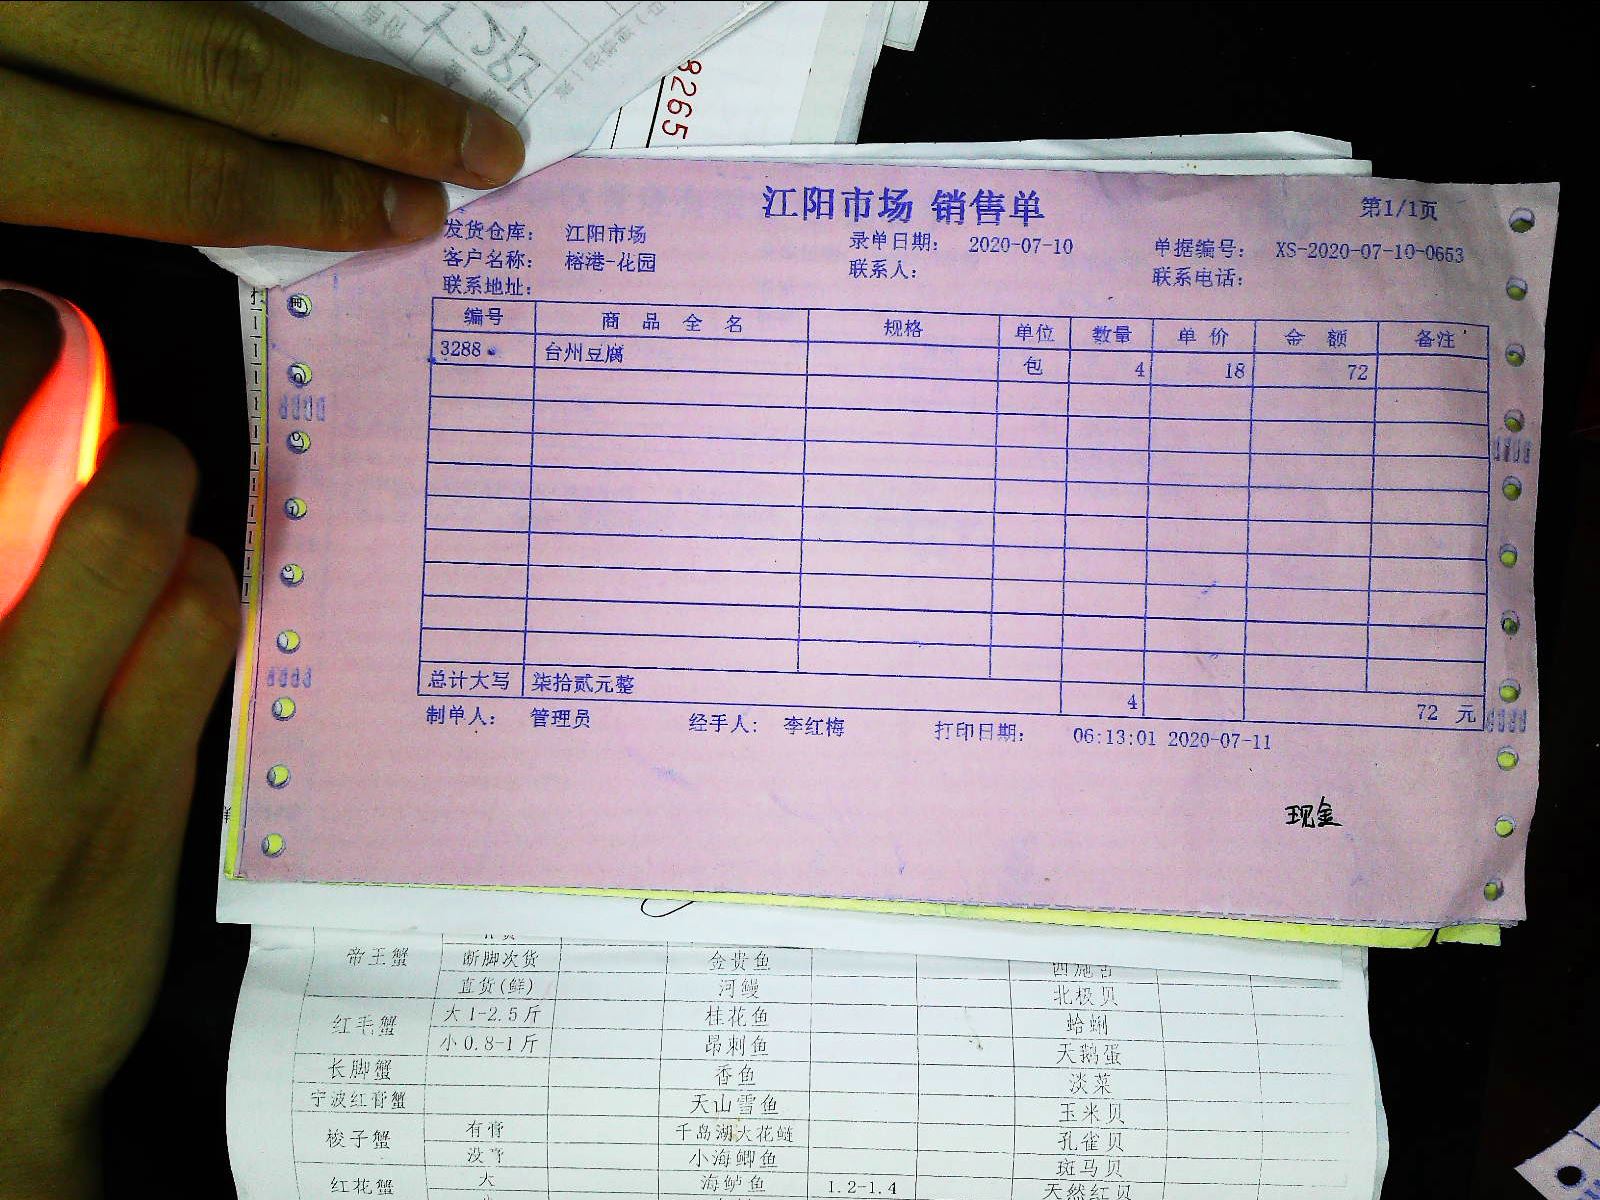 8265
江阳市场 销售单
第1/1页
发货仓库： 江阳市场 录单日期： 2020-07-10 单据编号： XS-2020-07-10-0653
客户名称： 榕港-花园 联系人： 联系电话：
联系地址：
编号 商 品 全 名 规格 单位 数量 单 价 金 额 备注
3288 台州豆腐 包 4 18 72
总计大写 柒拾贰元整 4 72 元
制单人： 管理员 经手人： 李红梅 打印日期： 06:13:01 2020-07-11
现金
帝王蟹 断脚次货 金贵鱼
直货(鲜) 河鳗 北极贝
红毛蟹 大1-2.5斤 桂花鱼 蛤蜊
小0.8-1斤 昂刺鱼 天鹅蛋
长脚蟹 香鱼 淡菜
宁波红膏蟹 天山雪鱼 玉米贝
梭子蟹 有膏 千岛湖大花鲢 孔雀贝
没膏 小海鲫鱼 斑马贝
红花蟹 大 海鲈鱼 1.2-1.4 天然红贝